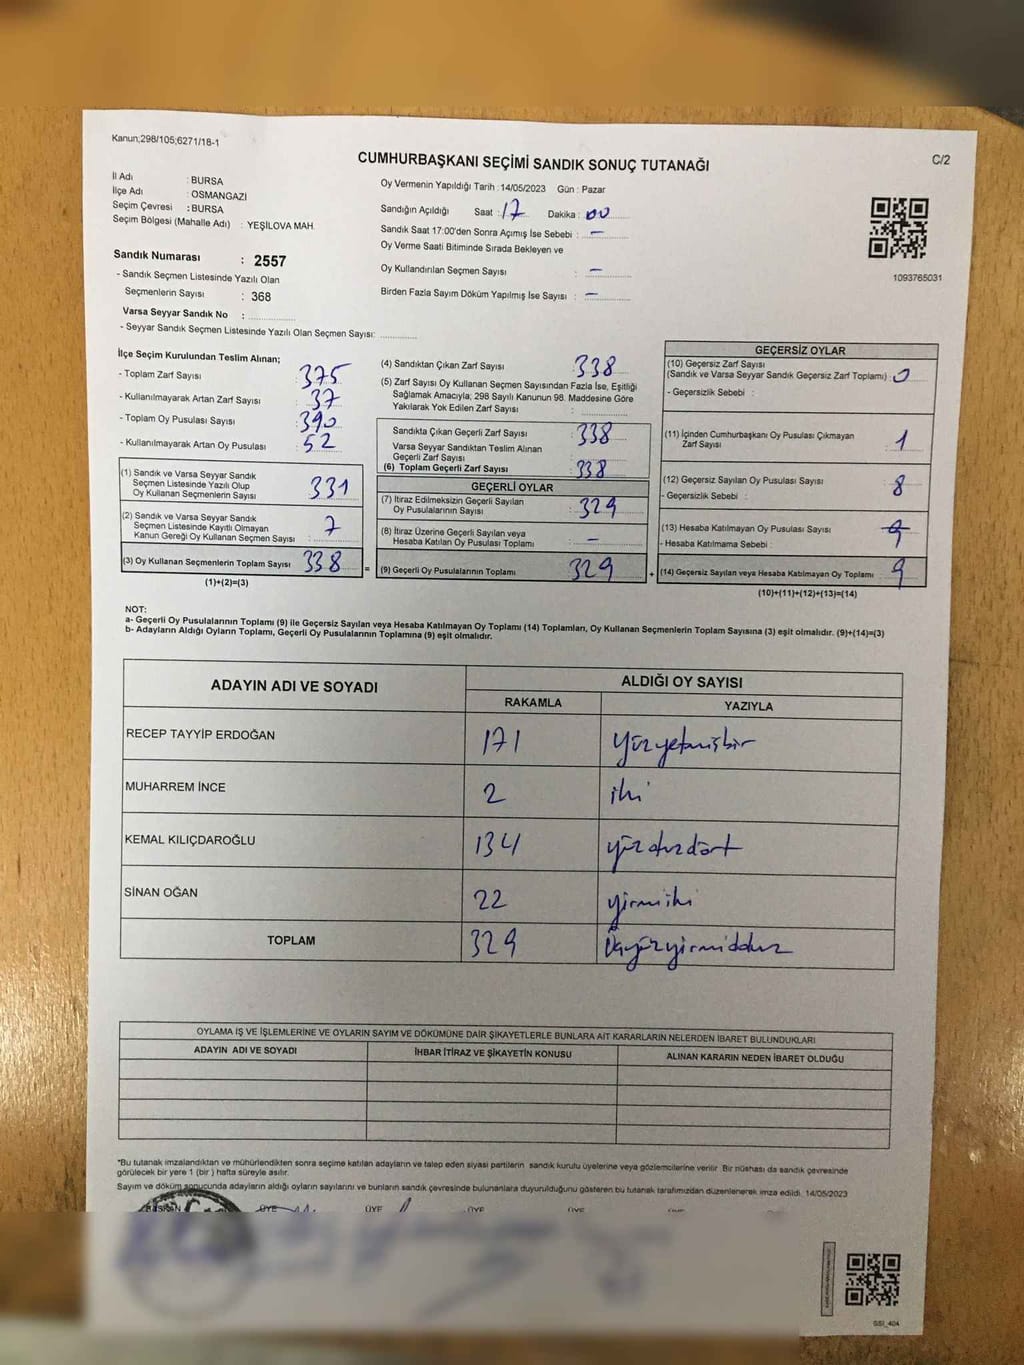 Kanun;298/105;6271/18-1
CUMHURBAŞKANI SEÇİMİ SANDIK SONUÇ TUTANAĞI
C/2
İl Adı : BURSA
İlçe Adı : OSMANGAZİ
Seçim Çevresi : BURSA
Seçim Bölgesi (Mahalle Adı) : YEŞİLOVA MAH.
Sandık Numarası : 2557
- Sandık Seçmen Listesinde Yazılı Olan
Seçmenlerin Sayısı : 368
Varsa Seyyar Sandık No :
- Seyyar Sandık Seçmen Listesinde Yazılı Olan Seçmen Sayısı:
Oy Vermenin Yapıldığı Tarih : 14/05/2023 Gün : Pazar
Sandığın Açıldığı Saat : 17 Dakika : 00
Sandık Saat 17:00'den Sonra Açımış İse Sebebi : –
Oy Verme Saati Bitiminde Sırada Bekleyen ve
Oy Kullandırılan Seçmen Sayısı : –
Birden Fazla Sayım Döküm Yapılmış İse Sayısı : –
1093765031
İlçe Seçim Kurulundan Teslim Alınan;
- Toplam Zarf Sayısı : 375
- Kullanılmayarak Artan Zarf Sayısı : 37
- Toplam Oy Pusulası Sayısı : 390
- Kullanılmayarak Artan Oy Pusulası : 52
(1) Sandık ve Varsa Seyyar Sandık
Seçmen Listesinde Yazılı Olup
Oy Kullanan Seçmenlerin Sayısı : 331
(2) Sandık ve Varsa Seyyar Sandık
Seçmen Listesinde Kayıtlı Olmayan
Kanun Gereği Oy Kullanan Seçmen Sayısı : 7
(3) Oy Kullanan Seçmenlerin Toplam Sayısı : 338
(1)+(2)=(3)
=
(4) Sandıktan Çıkan Zarf Sayısı : 338
(5) Zarf Sayısı Oy Kullanan Seçmen Sayısından Fazla İse, Eşitliği
Sağlamak Amacıyla; 298 Sayılı Kanunun 98. Maddesine Göre
Yakılarak Yok Edilen Zarf Sayısı :
Sandıkta Çıkan Geçerli Zarf Sayısı : 338
Varsa Seyyar Sandıktan Teslim Alınan
Geçerli Zarf Sayısı :
(6) Toplam Geçerli Zarf Sayısı : 338
GEÇERLİ OYLAR
(7) İtiraz Edilmeksizin Geçerli Sayılan
Oy Pusulalarının Sayısı : 329
(8) İtiraz Üzerine Geçerli Sayılan veya
Hesaba Katılan Oy Pusulası Toplamı : –
(9) Geçerli Oy Pusulalarının Toplamı : 329
+
GEÇERSİZ OYLAR
(10) Geçersiz Zarf Sayısı
(Sandık ve Varsa Seyyar Sandık Geçersiz Zarf Toplamı) : 0
- Geçersizlik Sebebi :
(11) İçinden Cumhurbaşkanı Oy Pusulası Çıkmayan
Zarf Sayısı : 1
(12) Geçersiz Sayılan Oy Pusulası Sayısı : 8
- Geçersizlik Sebebi :
(13) Hesaba Katılmayan Oy Pusulası Sayısı : 9
- Hesaba Katılmama Sebebi :
(14) Geçersiz Sayılan veya Hesaba Katılmayan Oy Toplamı : 9
(10)+(11)+(12)+(13)=(14)
NOT:
a- Geçerli Oy Pusulalarının Toplamı (9) ile Geçersiz Sayılan veya Hesaba Katılmayan Oy Toplamı (14) Toplamları, Oy Kullanan Seçmenlerin Toplam Sayısına (3) eşit olmalıdır. (9)+(14)=(3)
b- Adayların Aldığı Oyların Toplamı, Geçerli Oy Pusulalarının Toplamına (9) eşit olmalıdır.
ADAYIN ADI VE SOYADI
ALDIĞI OY SAYISI
RAKAMLA YAZIYLA
RECEP TAYYİP ERDOĞAN 171 yüzyetmişbir
MUHARREM İNCE 2 iki
KEMAL KILIÇDAROĞLU 134 yüzotuzdört
SİNAN OĞAN 22 yirmiiki
TOPLAM 329 Üçyüzyirmidokuz
OYLAMA İŞ VE İŞLEMLERİNE VE OYLARIN SAYIM VE DÖKÜMÜNE DAİR ŞİKAYETLERLE BUNLARA AİT KARARLARIN NELERDEN İBARET BULUNDUKLARI
ADAYIN ADI VE SOYADI İHBAR İTİRAZ VE ŞİKAYETİN KONUSU ALINAN KARARIN NEDEN İBARET OLDUĞU
*Bu tutanak imzalandıktan ve mühürlendikten sonra seçime katılan adayların ve talep eden siyasi partilerin sandık kurulu üyelerine veya gözlemcilerine verilir. Bir nüshası da sandık çevresinde
görülecek bir yere 1 (bir) hafta süreyle asılır.
Sayım ve döküm sonucunda adayların aldığı oyların sayılarını ve bunların sandık çevresinde bulunanlara duyurulduğunu gösteren bu tutanak tarafımızdan düzenlenerek imza edildi. 14/05/2023
BAŞKAN ÜYE ÜYE ÜYE ÜYE ÜYE
SSI_404